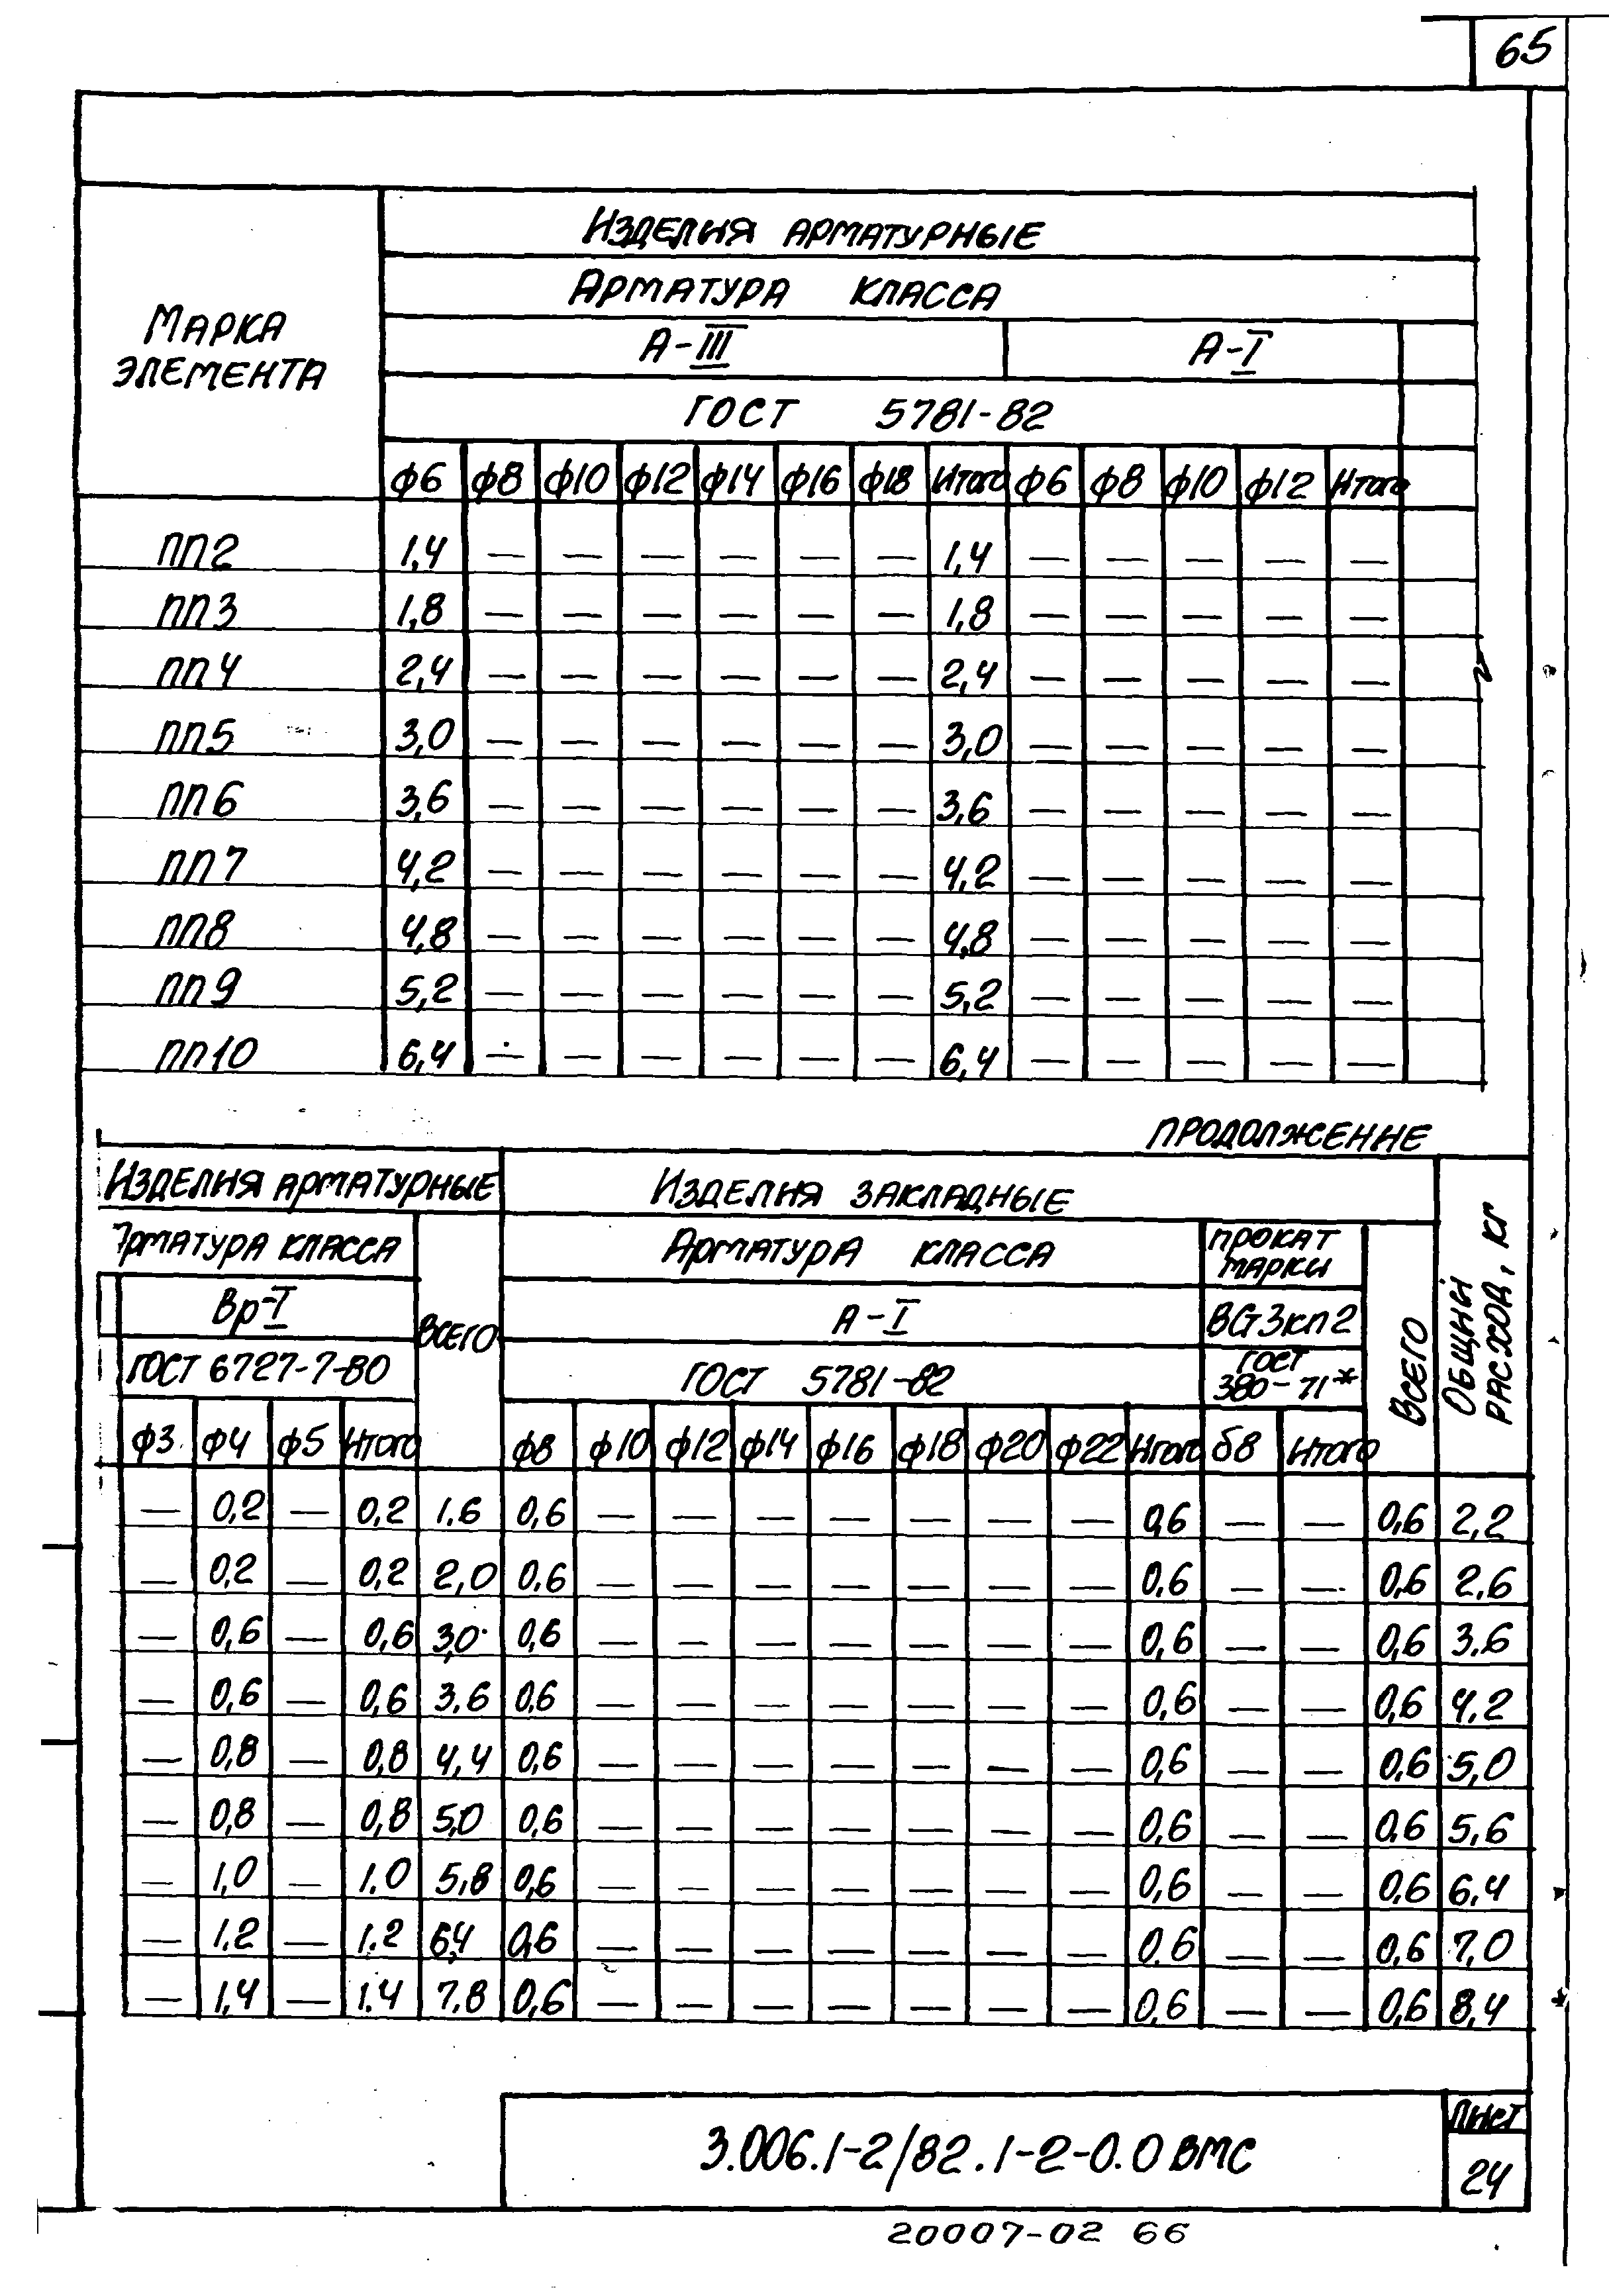 65
ИЗДЕЛИЯ АРМАТУРНЫЕ
АРМАТУРА КЛАССА
МАРКА ЭЛЕМЕНТА
А-III А-I
ГОСТ 5781-82
ф6 ф8 ф10 ф12 ф14 ф16 ф18 Итого ф6 ф8 ф10 ф12 Итого
ПП2 1,4 — — — — — — 1,4 — — — — —
ПП3 1,8 — — — — — — 1,8 — — — — —
ПП4 2,4 — — — — — — 2,4 — — — — —
ПП5 3,0 — — — — — — 3,0 — — — — —
ПП6 3,6 — — — — — — 3,6 — — — — —
ПП7 4,2 — — — — — — 4,2 — — — — —
ПП8 4,8 — — — — — — 4,8 — — — — —
ПП9 5,2 — — — — — — 5,2 — — — — —
ПП10 6,4 — — — — — — 6,4 — — — — —
ПРОДОЛЖЕНИЕ
ИЗДЕЛИЯ АРМАТУРНЫЕ ИЗДЕЛИЯ ЗАКЛАДНЫЕ ОБЩИЙ РАСХОД, КГ
АРМАТУРА КЛАССА ВСЕГО АРМАТУРА КЛАССА ПРОКАТ МАРКИ ВСЕГО
Вр-I А-I ВСт3кп2
ГОСТ 6727-7-80 ГОСТ 5781-82 ГОСТ 380-71*
ф3 ф4 ф5 Итого ф8 ф10 ф12 ф14 ф16 ф18 ф20 ф22 Итого б8 Итого
— 0,2 — 0,2 1.6 0,6 — — — — — — — 0,6 — — 0,6 2,2
— 0,2 — 0,2 2,0 0,6 — — — — — — — 0,6 — — 0,6 2,6
— 0,6 — 0,6 3,0 0,6 — — — — — — — 0,6 — — 0,6 3.6
— 0,6 — 0,6 3.6 0,6 — — — — — — — 0,6 — — 0,6 4.2
— 0,8 — 0,8 4,4 0,6 — — — — — — — 0,6 — — 0,6 5,0
— 0,8 — 0,8 5,0 0,6 — — — — — — — 0,6 — — 0.6 5,6
— 1,0 — 1.0 5,8 0,6 — — — — — — — 0,6 — — 0,6 6,4
— 1.2 — 1.2 6,4 0,6 — — — — — — — 0.6 — — 0,6 7,0
— 1,4 — 1.4 7.8 0,6 — — — — — — — 0,6 — — 0,6 8,4
3.006.1-2/82.1-2-0.0 ВМС
Лист
24
20007-02 66